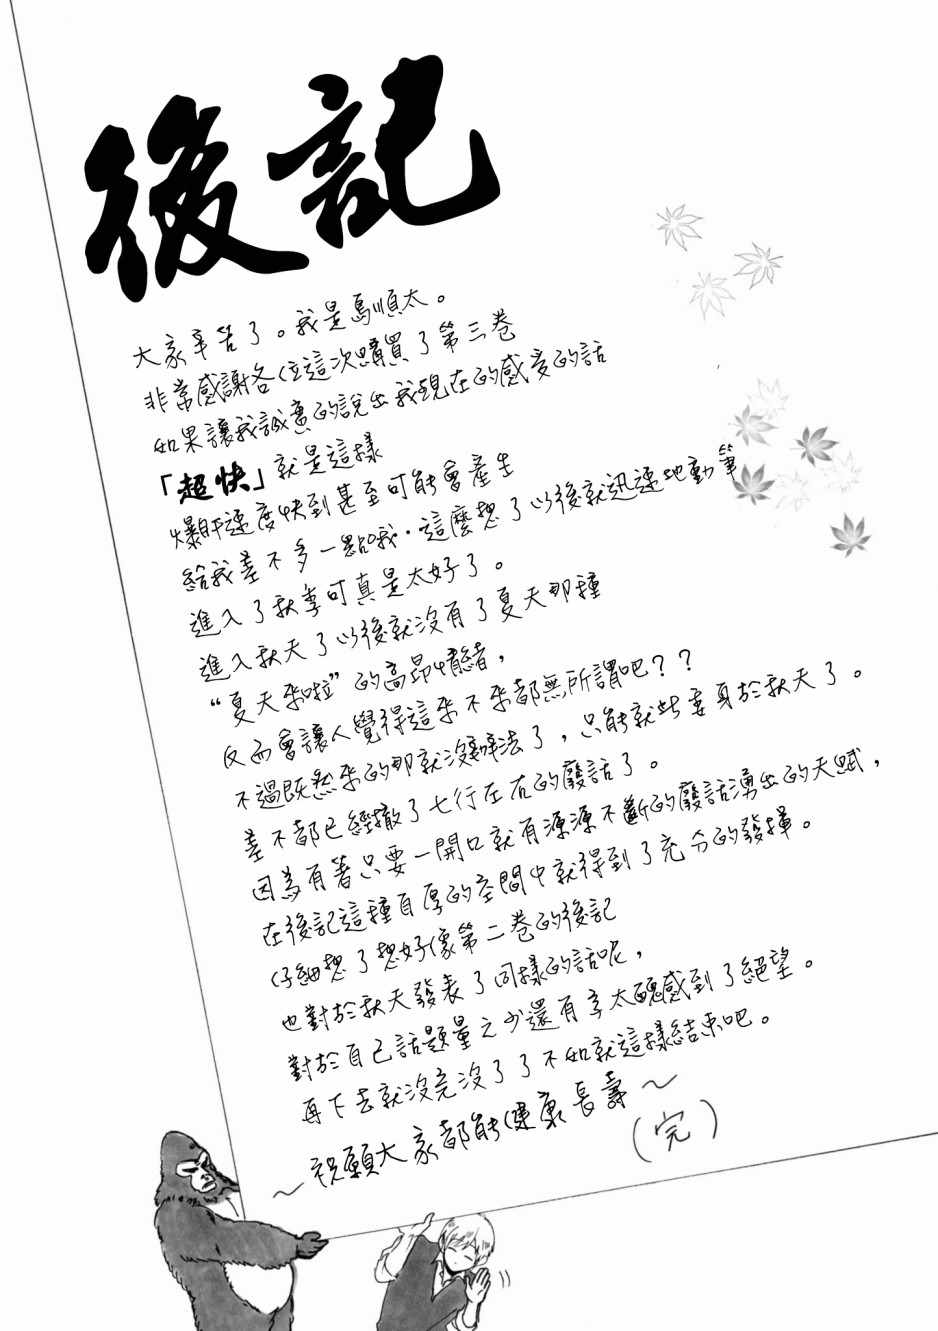 後記
大家辛苦了。我是馬順太。
非常感謝各位這次購買了第三卷
如果讓我誠實的說出我現在的感受的話
「超快」就是這樣
爆肝速度快到甚至可能會產生
給我差不多一點哦.這麼想了以後就迅速地動筆
進入了秋季可真是太好了。
進入秋天了以後就沒有了夏天那種
“夏天來啦”的高昂情緒，
反而會讓人覺得這來不來都無所謂吧？？
不過既然來的那就沒辦法了，只能就此委身於秋天了。
差不都已經撤了七行左右的廢話了。
因為有著只要一開口就有源源不斷的廢話湧出的天賦，
在後記這種自厚的空間中就得到了充分的發揮。
仔細想了想好像第二卷的後記
也對於秋天發表了同樣的話呢，
對於自己話題量之少還有字太醜感到了絕望。
再下去就沒完沒了了不如就這樣結束吧。
～祝願大家都能健康長壽～
(完)